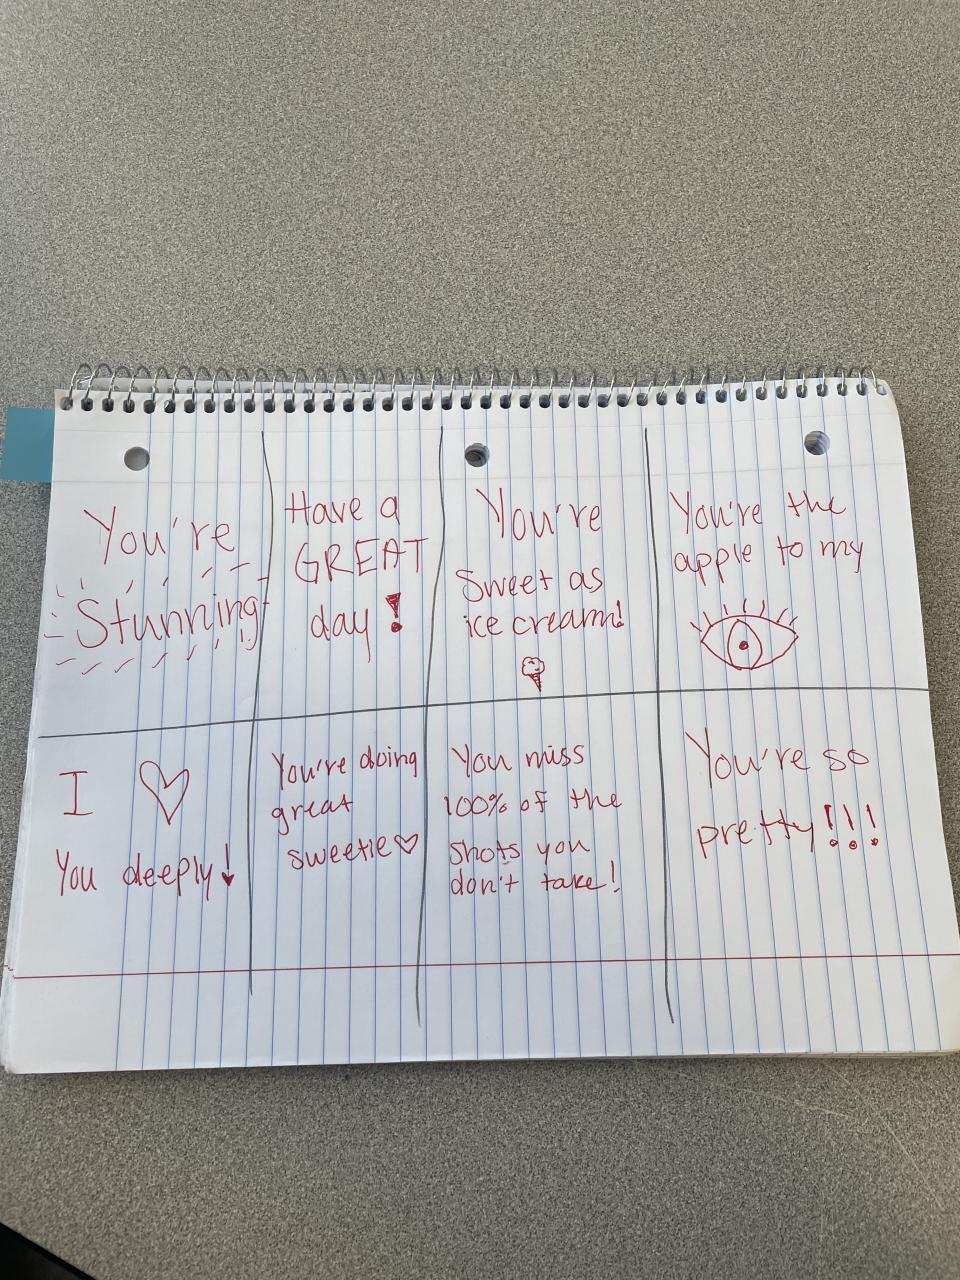 You're
Stunning
Have a
GREAT
day!
You're
Sweet as
ice cream!
You're the
apple to my
I ♡
You deeply!
You're doing
great
sweetie♡
You miss
100% of the
shots you
don't take!
You're so
pretty!!!